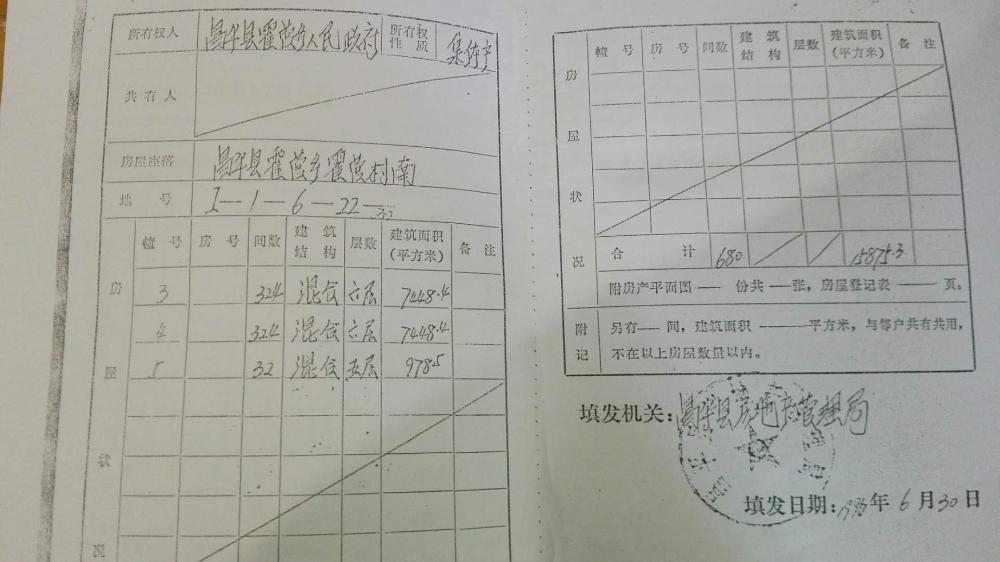 所有权人 昌平县霍营乡人民政府 所有权性质 集体产
共有人
房屋座落 昌平县霍营乡霍营村南
地号 I—1—6—22—
房屋状况
幢号 房号 间数 建筑结构 层数 建筑面积(平方米) 备注
3 324 混合 六层 7448.4
4 324 混合 六层 7448.4
5 32 混合 五层 978.5
房屋状况
幢号 房号 间数 建筑结构 层数 建筑面积(平方米) 备注
合计 680 15875.3
附房产平面图——份共—张,房屋登记表——页。
附记
另有—间,建筑面积———平方米,与邻户共有共用,
不在以上房屋数量以内。
填发机关:昌平县房地产管理局
填发日期: 年6月30日